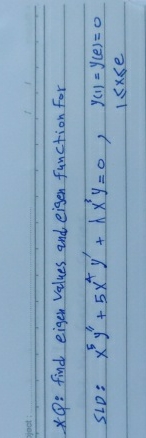 ject:
*Q: find eigen values and eigen function for
SLD: x⁵y″ + 5x⁴y′ + λx³y = 0 , y(1) = y(e) = 0
1≤x≤e